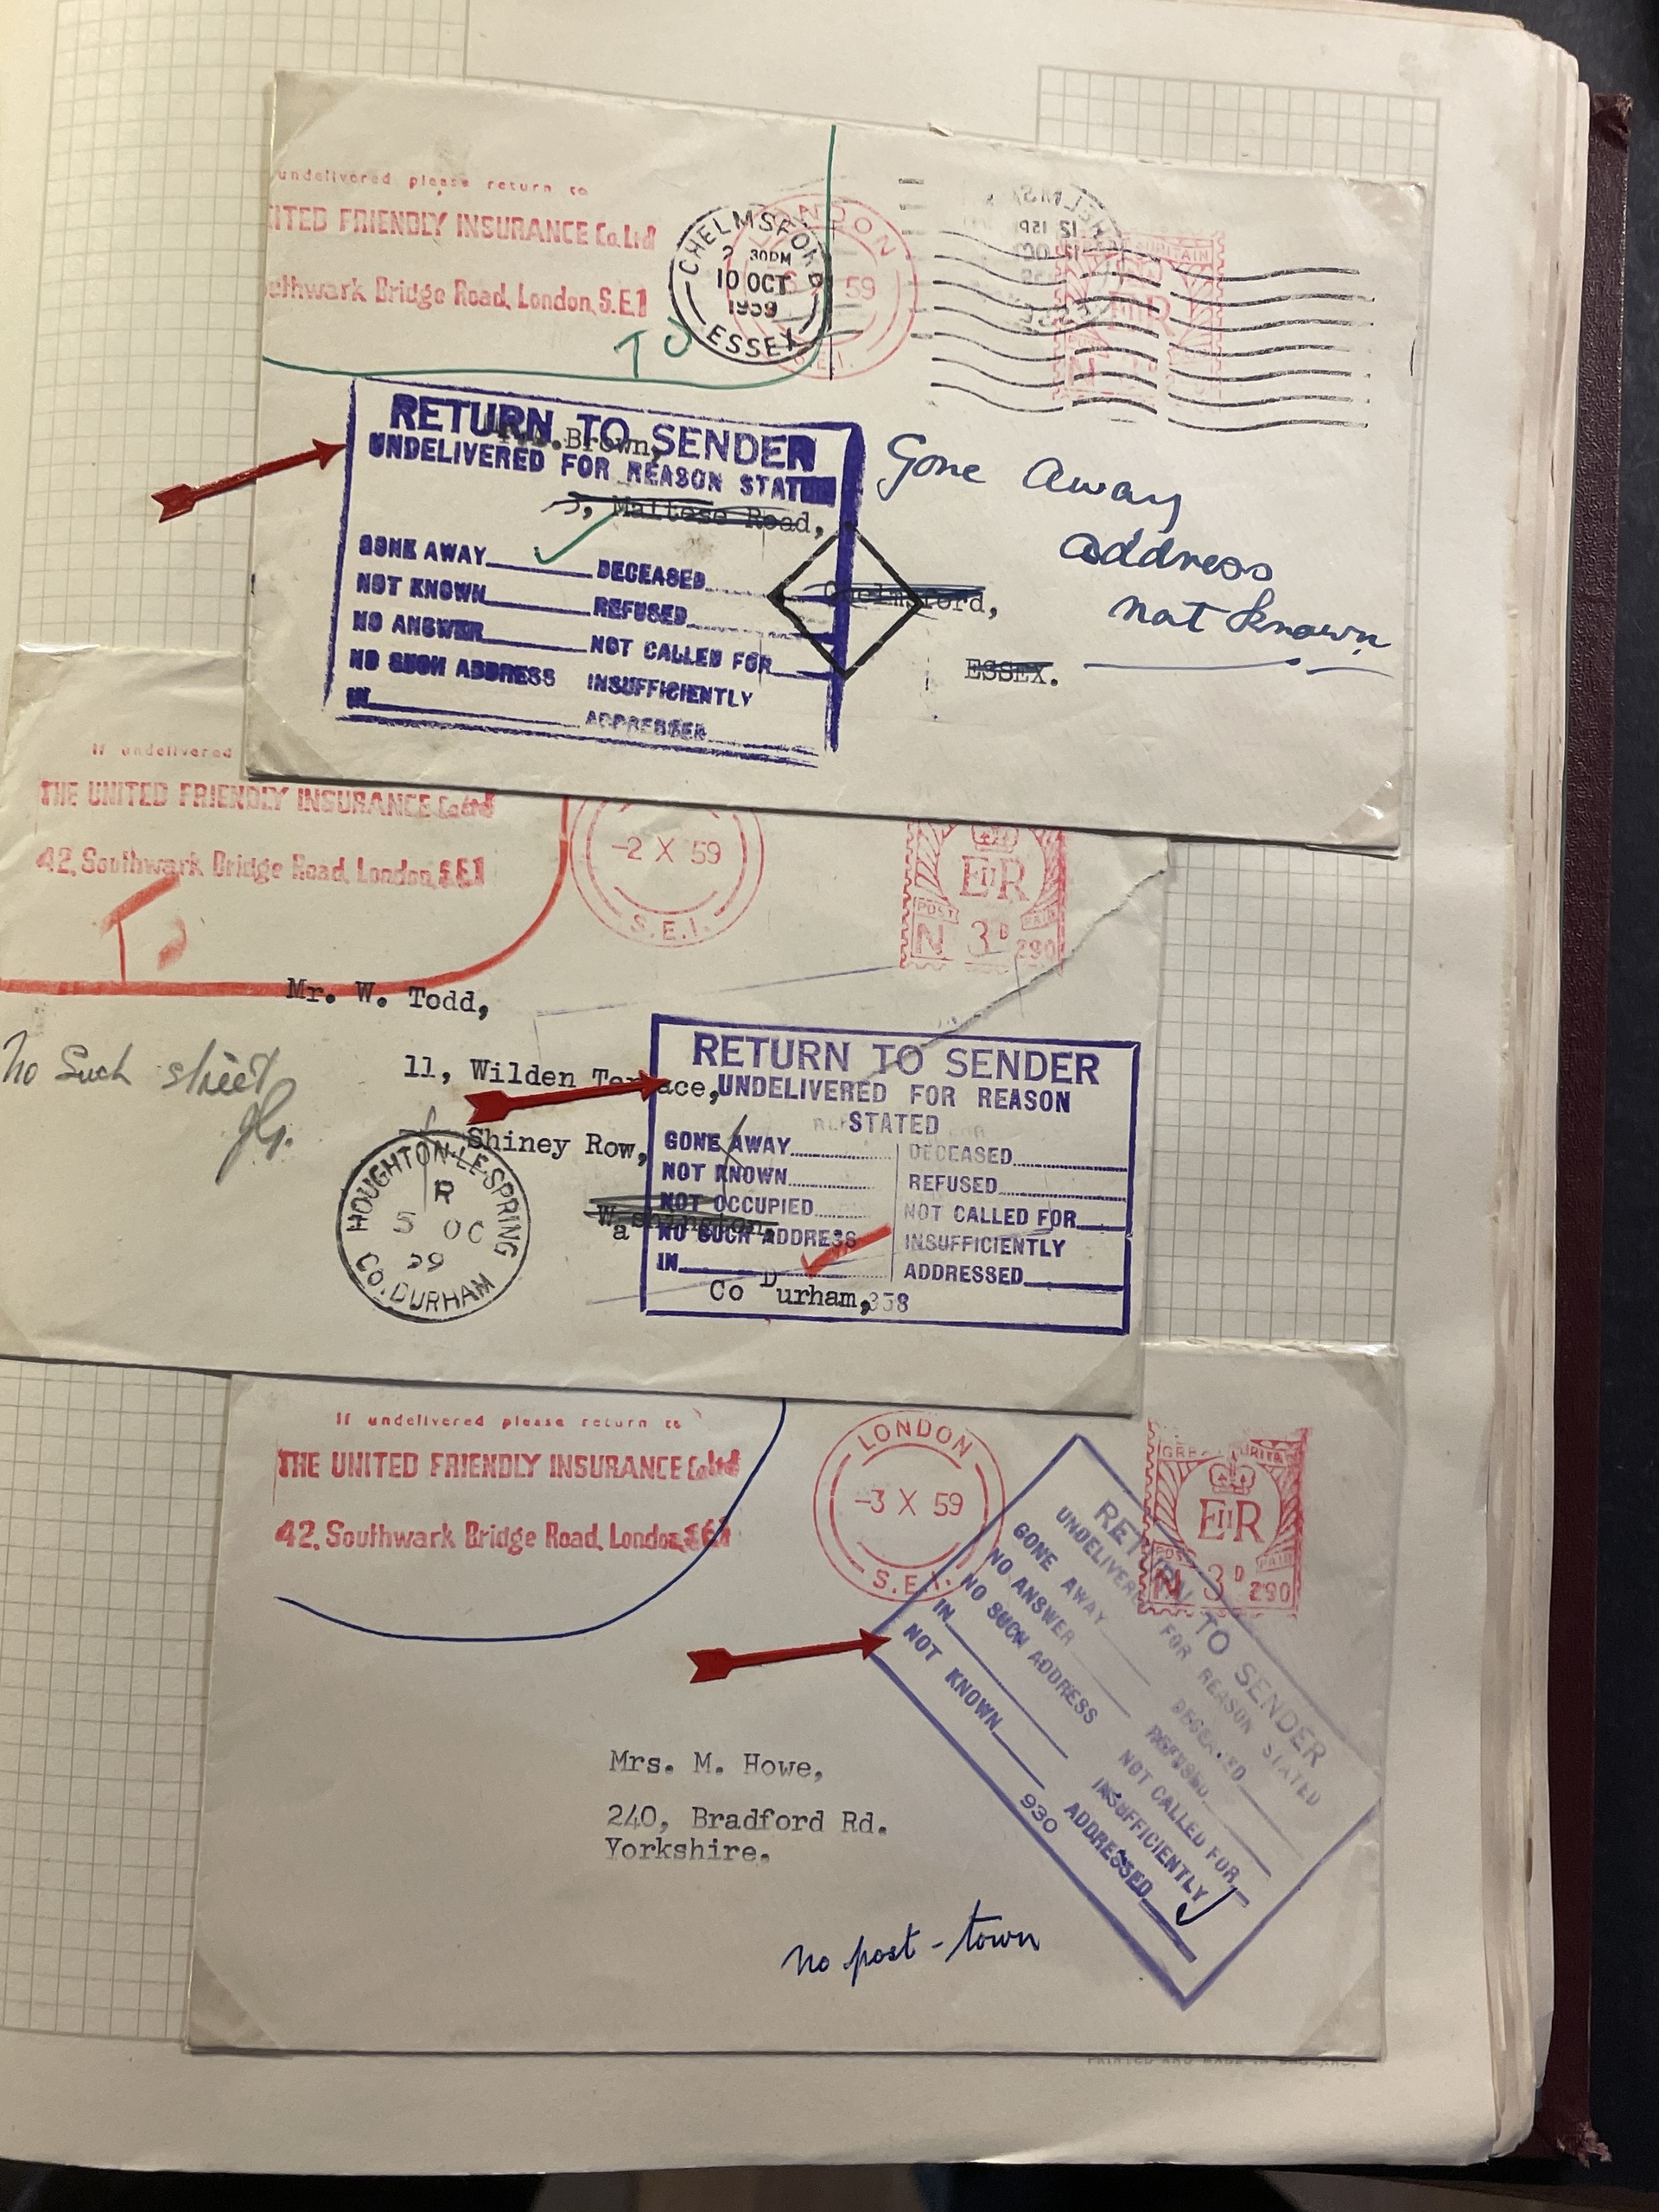 undelivered please return to
ITED FRIENDLY INSURANCE Co. Ltd
uthwark Bridge Road, London, S.E.1
CHELMSFORD
2 30PM
10 OCT
1959
ESSEX
LONDON
59
S.E.1.
To
RETURN TO SENDER
UNDELIVERED FOR REASON STATED
Brown,
Maltese Road,
Chelmsford,
ESSEX.
GONE AWAY
DECEASED
NOT KNOWN
REFUSED
NO ANSWER
NOT CALLED FOR
NO SUCH ADDRESS
INSUFFICIENTLY
IN
ADDRESSED
Gone Away
address
not known
If undelivered
THE UNITED FRIENDLY INSURANCE Co. Ltd
42, Southwark Bridge Road, London, S.E.1
-2 X 59
S.E.1.
E II R
POST PAID
N 3D 290
To
Mr. W. Todd,
11, Wilden Terrace,
Shiney Row,
Washington,
Co Durham,
No Such street
JG.
HOUGHTON-LE-SPRING
R
5 OC
59
CO. DURHAM
RETURN TO SENDER
UNDELIVERED FOR REASON
STATED
GONE AWAY
DECEASED
NOT KNOWN
REFUSED
NOT OCCUPIED
NOT CALLED FOR
NO SUCH ADDRESS
INSUFFICIENTLY
IN
ADDRESSED
358
If undelivered please return to
THE UNITED FRIENDLY INSURANCE Co. Ltd
42, Southwark Bridge Road, London, S.E.1
LONDON
-3 X 59
S.E.1.
GREAT BRITAIN
E II R
POST PAID
N 3D 290
RETURN TO SENDER
UNDELIVERED FOR REASON STATED
GONE AWAY
DECEASED
NO ANSWER
REFUSED
NO SUCH ADDRESS
NOT CALLED FOR
IN
INSUFFICIENTLY
NOT KNOWN
ADDRESSED
930
Mrs. M. Howe,
240, Bradford Rd.
Yorkshire,
No post-town
PRINTED AND MADE IN ENGLAND.